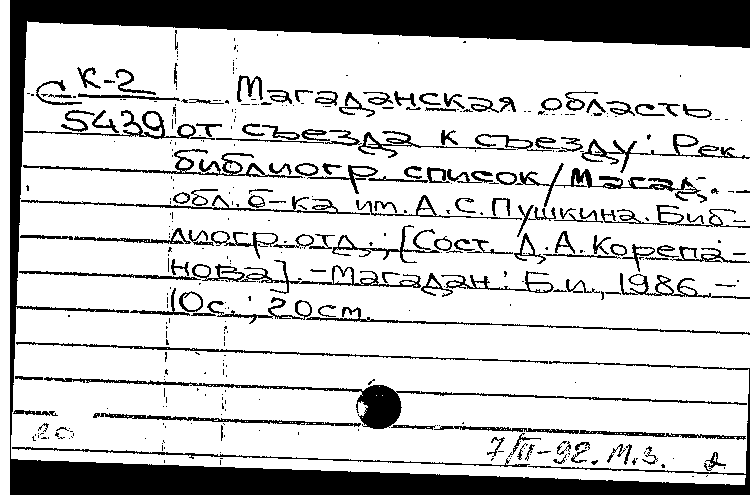 С К-2
5439
Магаданская область
от съезда к съезду: Рек.
библиогр. список / Магад.
обл. б-ка им. А.С. Пушкина. Биб-
лиогр. отд.; [Сост. Д.А. Корепа-
нова]. - Магадан: Б.и., 1986. -
10с.; 20см.
20
7/III-92. М.З.